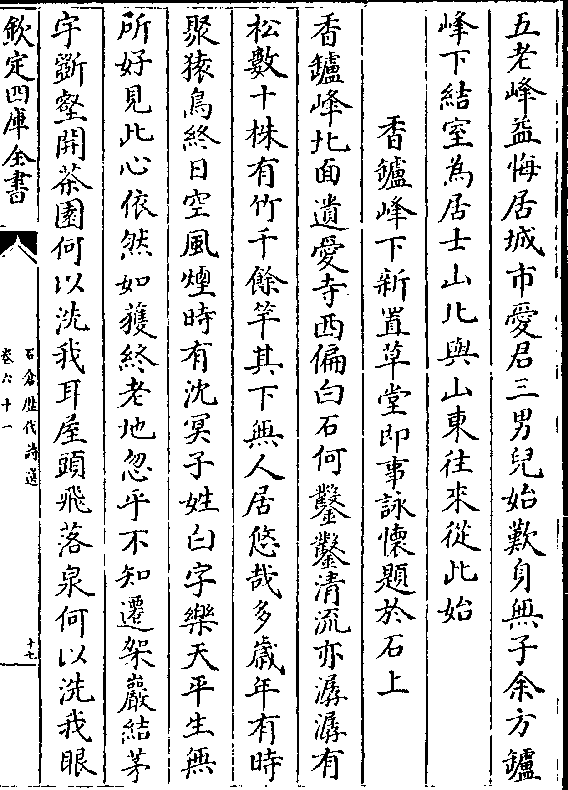 五老峰益悔居城市愛君三男兒始歎身無子余方鑪
峰下結室為居士山北與山東往來從此始
香鑪峰下新置草堂即事詠懷題於石上
香鑪峰北面遺愛寺西偏白石何鑿鑿清流亦潺潺有
松數十株有竹千餘竿其下無人居悠哉多歲年有時
聚猿鳥終日空風煙時有沈冥子姓白字樂天平生無
所好見此心依然如獲終老地忽乎不知還架巖結茅
宇斵壑開茶園何以洗我耳屋頭飛落泉何以洗我眼
欽定四庫全書
石倉歴代詩選
卷六十一
十七